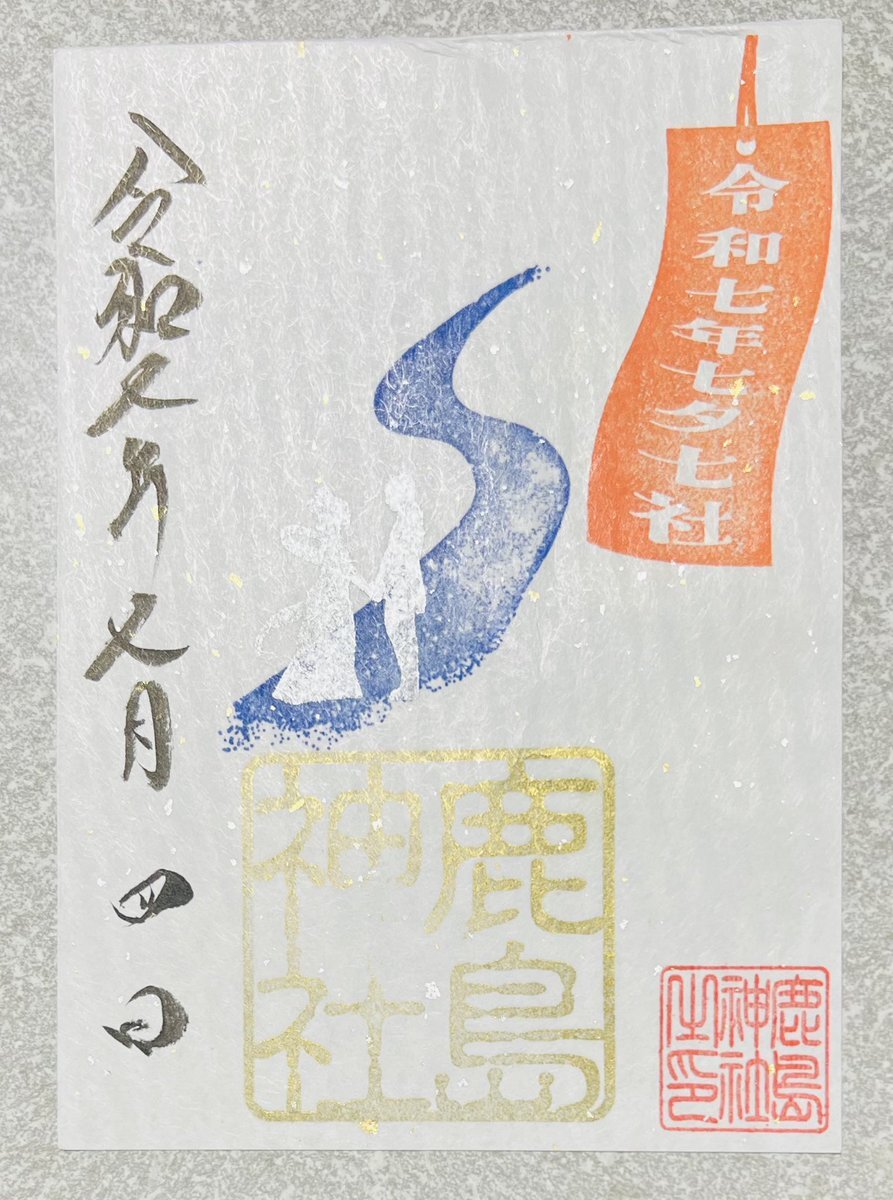 令和七年七夕七社
鹿島
神社
鹿島
神社
之印
令和七年七月四日